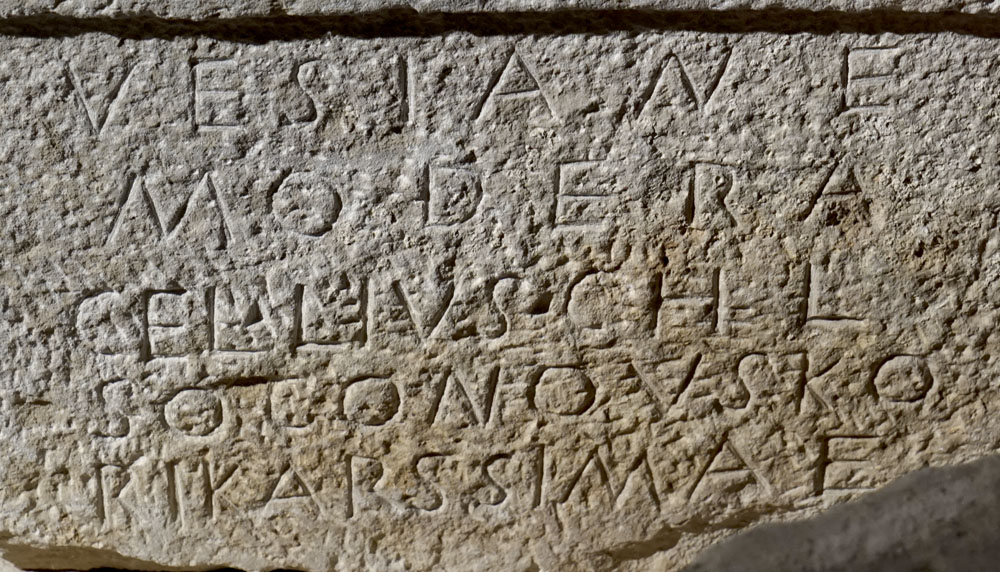 VESIANE
MODERA
GELLIVS · CHEL
SOCONOVSKO
RIKARSSIMAE